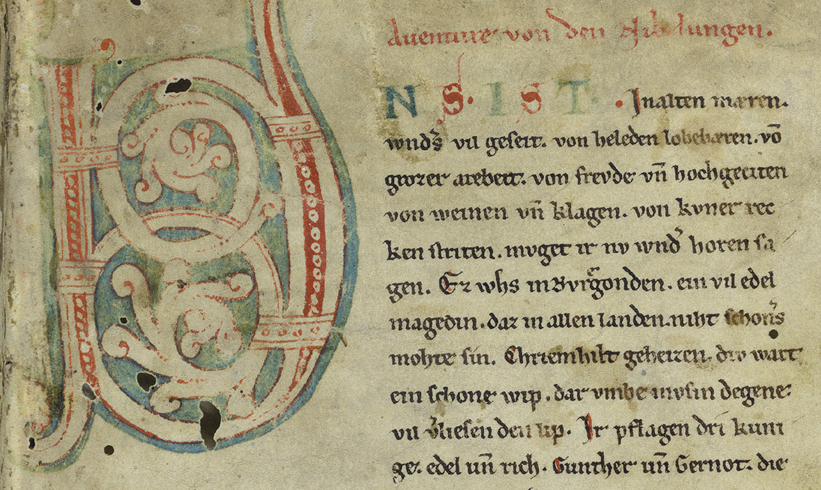 Auenture von den Nibelungen.
UNS IST. In alten mæren.
wnds vil geseit. von heleden lobebæren. võ
grozer arebeit. von frevde vñ hochgeciten
von weinen vñ klagen. von kvner rec
ken striten. mvget ir nv wnd horen sa
gen. Ez whs in Bvrgonden. ein vil edel
magedin. daz in allen landen. niht schons
mohte sin. Chriemhilt geheizen. div wart
ein schone wip. dar vmbe mvsin degene
vil vliesen den lip. Ir pflagen dri kuni
ge. edel vñ rich. Gunther vñ Gernot. die